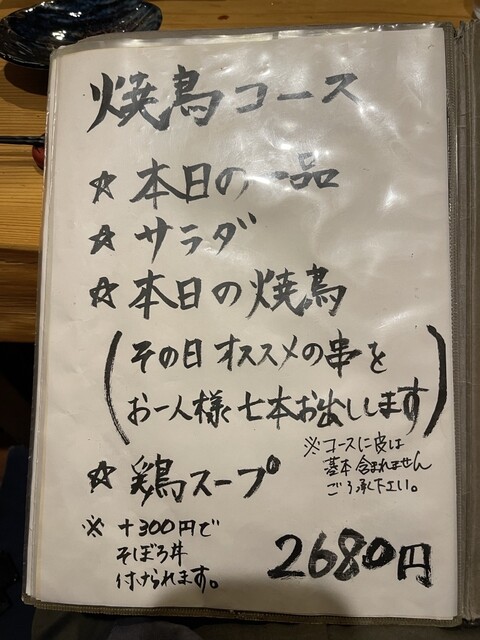 焼鳥コース
☆ 本日の一品
☆ サラダ
☆ 本日の焼鳥
(その日オススメの串を
お一人様七本お出しします)
※コースに皮は
基本含まれません
ご了承下さい。
☆ 鶏スープ
※ +300円で
そぼろ丼
付けられます。
2680円